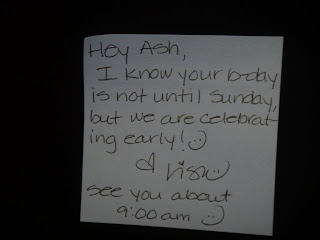 Hey Ash,
I know your b-day
is not until Sunday,
but we are celebrat-
ing early!
see you about
9:00am